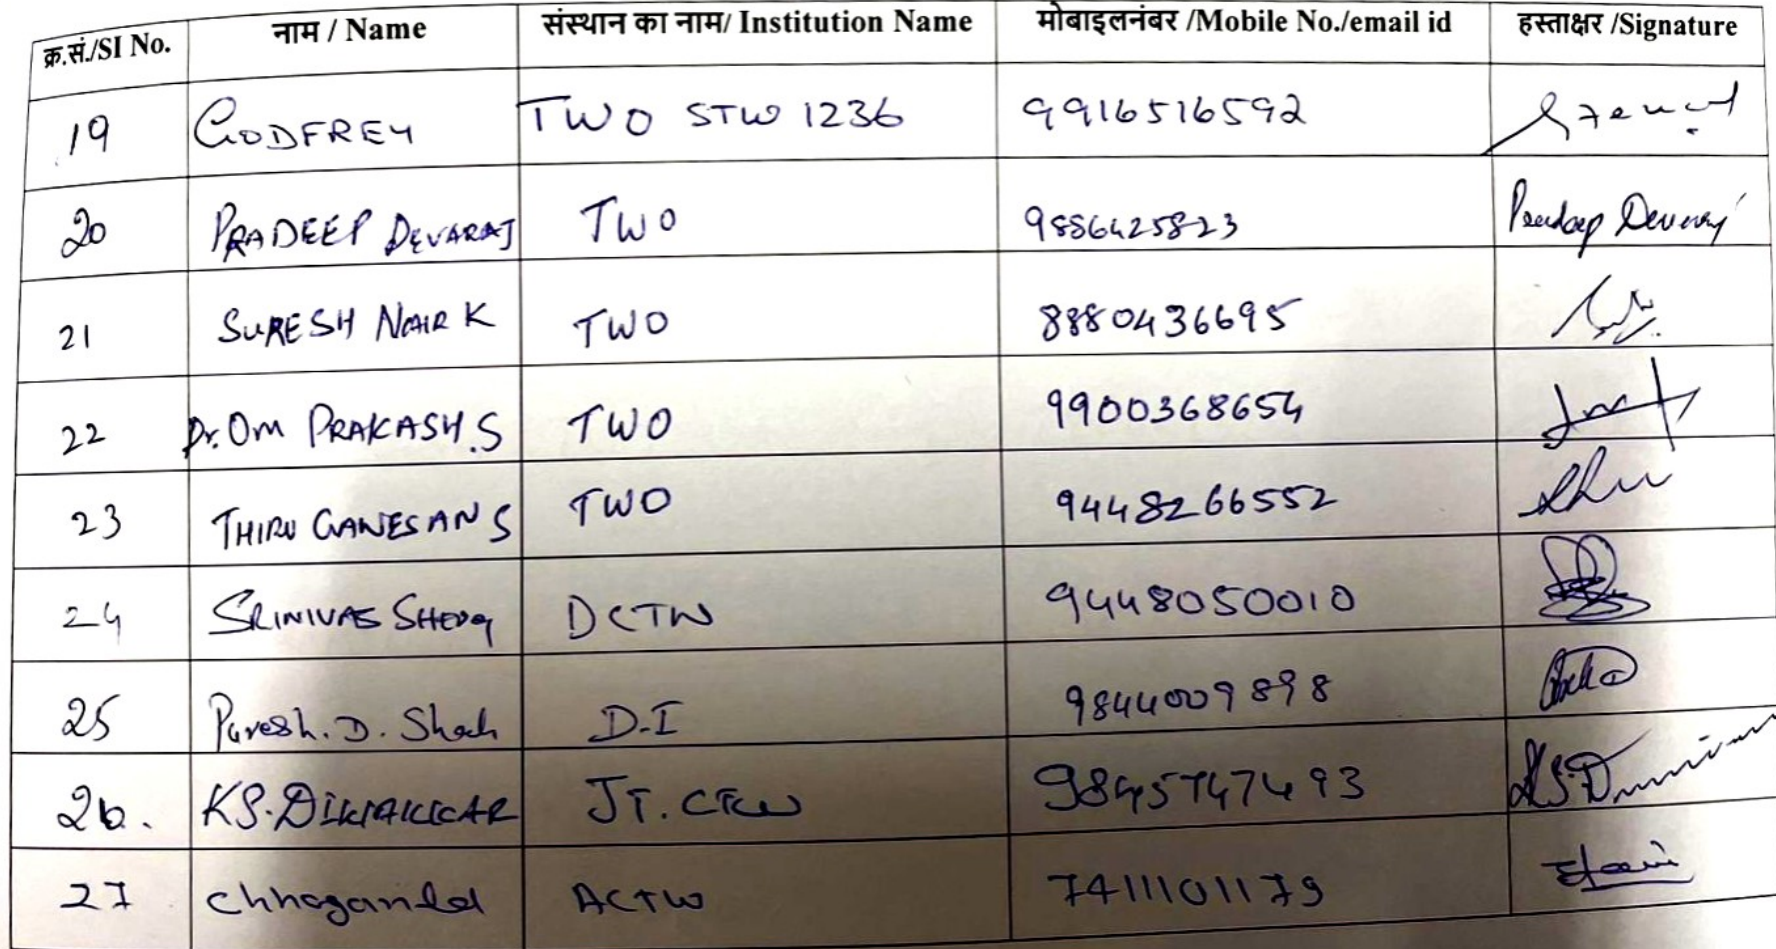 क्र.सं./SI No. नाम / Name संस्थान का नाम/ Institution Name मोबाइलनंबर /Mobile No./email id हस्ताक्षर /Signature
19 GODFREY TWO STW 1236 9916516592
20 PRADEEP DEVARAJ TWO 9886425823 Pradeep Devaraj
21 SURESH NAIR K TWO 8880436695
22 Dr. OM PRAKASH.S TWO 9900368654
23 THIRU GANESAN S TWO 9448266552
24 SRINIVAS DCTW 9448050010
25 Paresh. D. Shah D.I 9844009898
26. KS. JT. CTW 9845747493
27 Chhaganlal ACTW 7411101179